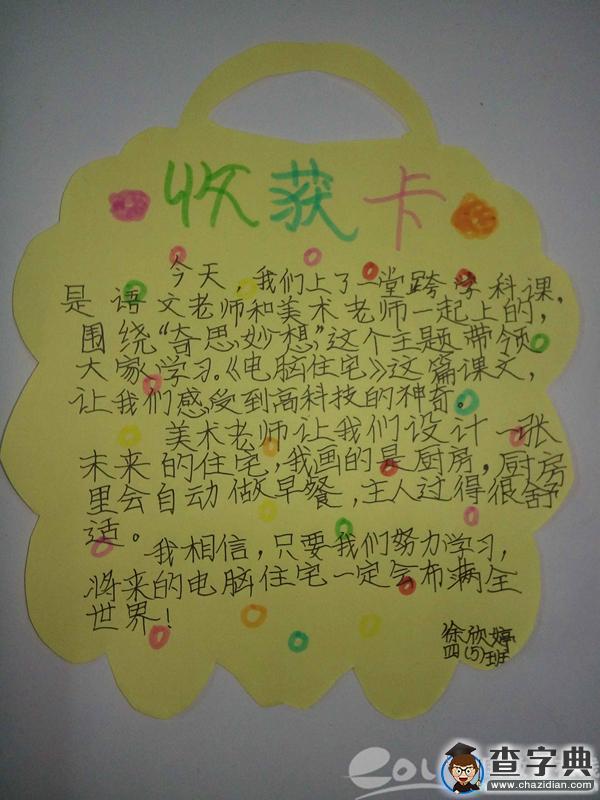 收获卡
今天,我们上了一堂跨学科课,
是语文老师和美术老师一起上的,
围绕“奇思妙想”这个主题带领
大家学习。《电脑住宅》这篇课文,
让我们感受到高科技的神奇。
美术老师让我们设计一张
未来的住宅,我画的是厨房,厨房
里会自动做早餐,主人过得很舒
适。
我相信,只要我们努力学习,
将来的电脑住宅一定会布满全
世界!
徐欣婷
四(5)班
查字典
www.chazidian.com